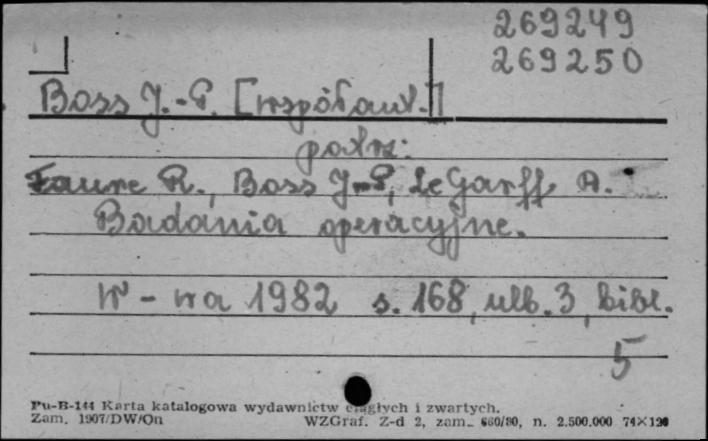 269249
269250
Boss J.-P. [współaut.]
patrz:
Faure R., Boss J-P, Le Garff A.
Badania operacyjne.
W-wa 1982 s. 168, nlb. 3, bibl.
5
Pu-B-144 Karta katalogowa wydawnictw ciągłych i zwartych.
Zam. 1907/DW/On WZGraf. Z-d 2, zam. 660/80, n. 2.500.000 74×120